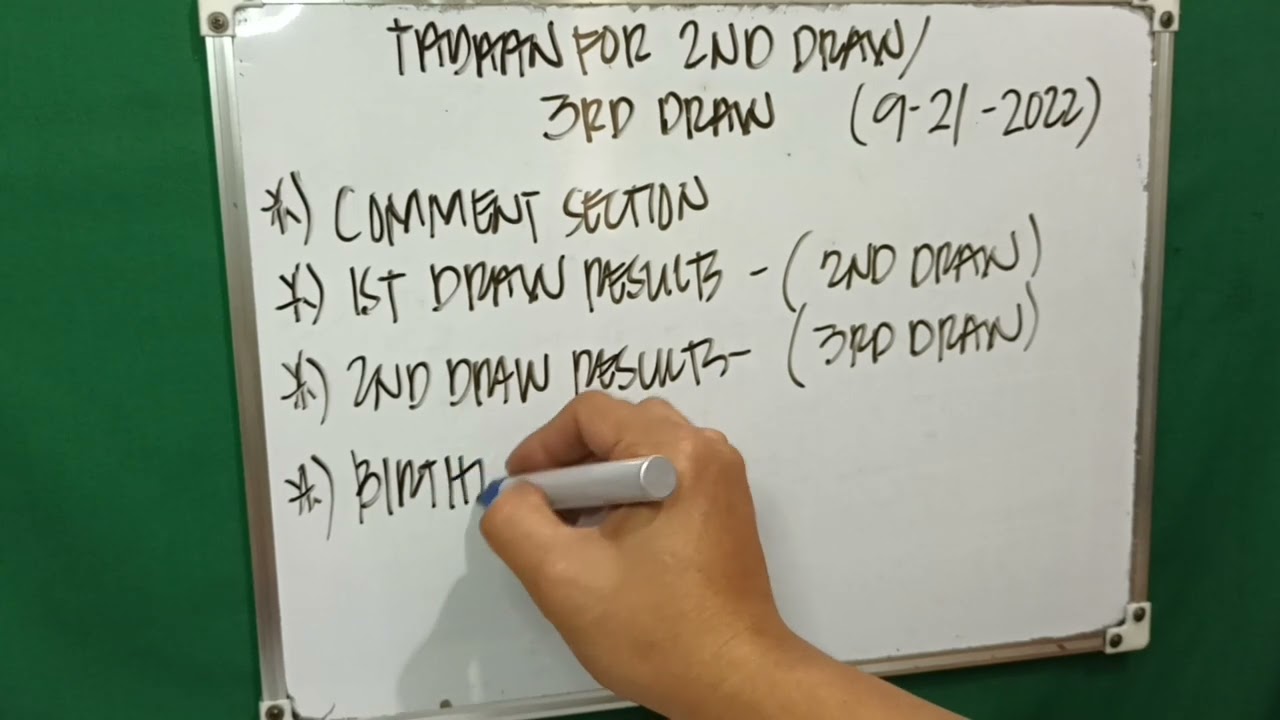 TADAAN FOR 2ND DRAW/
3RD DRAW (9-21-2022)
*.) COMMENT SECTION
*.) 1ST DRAW RESULTS - (2ND DRAW)
*.) 2ND DRAW RESULTS - (3RD DRAW)
*.) BIRTH